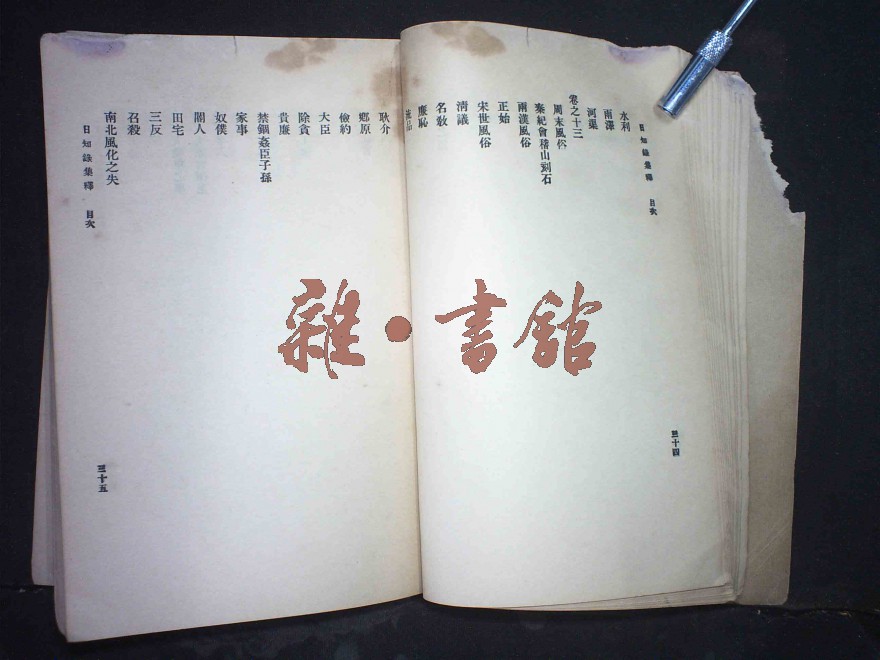 日知錄集釋 目次
三十四
水利
雨澤
河渠
卷之十三
周末風俗
秦紀會稽山刻石
兩漢風俗
正始
宋世風俗
清議
名教
廉恥
流品
耿介
鄉原
儉約
大臣
除貪
貴廉
禁錮姦臣子孫
家事
奴僕
閽人
田宅
三反
召殺
南北風化之失
日知錄集釋 目次
三十五
雜·書館